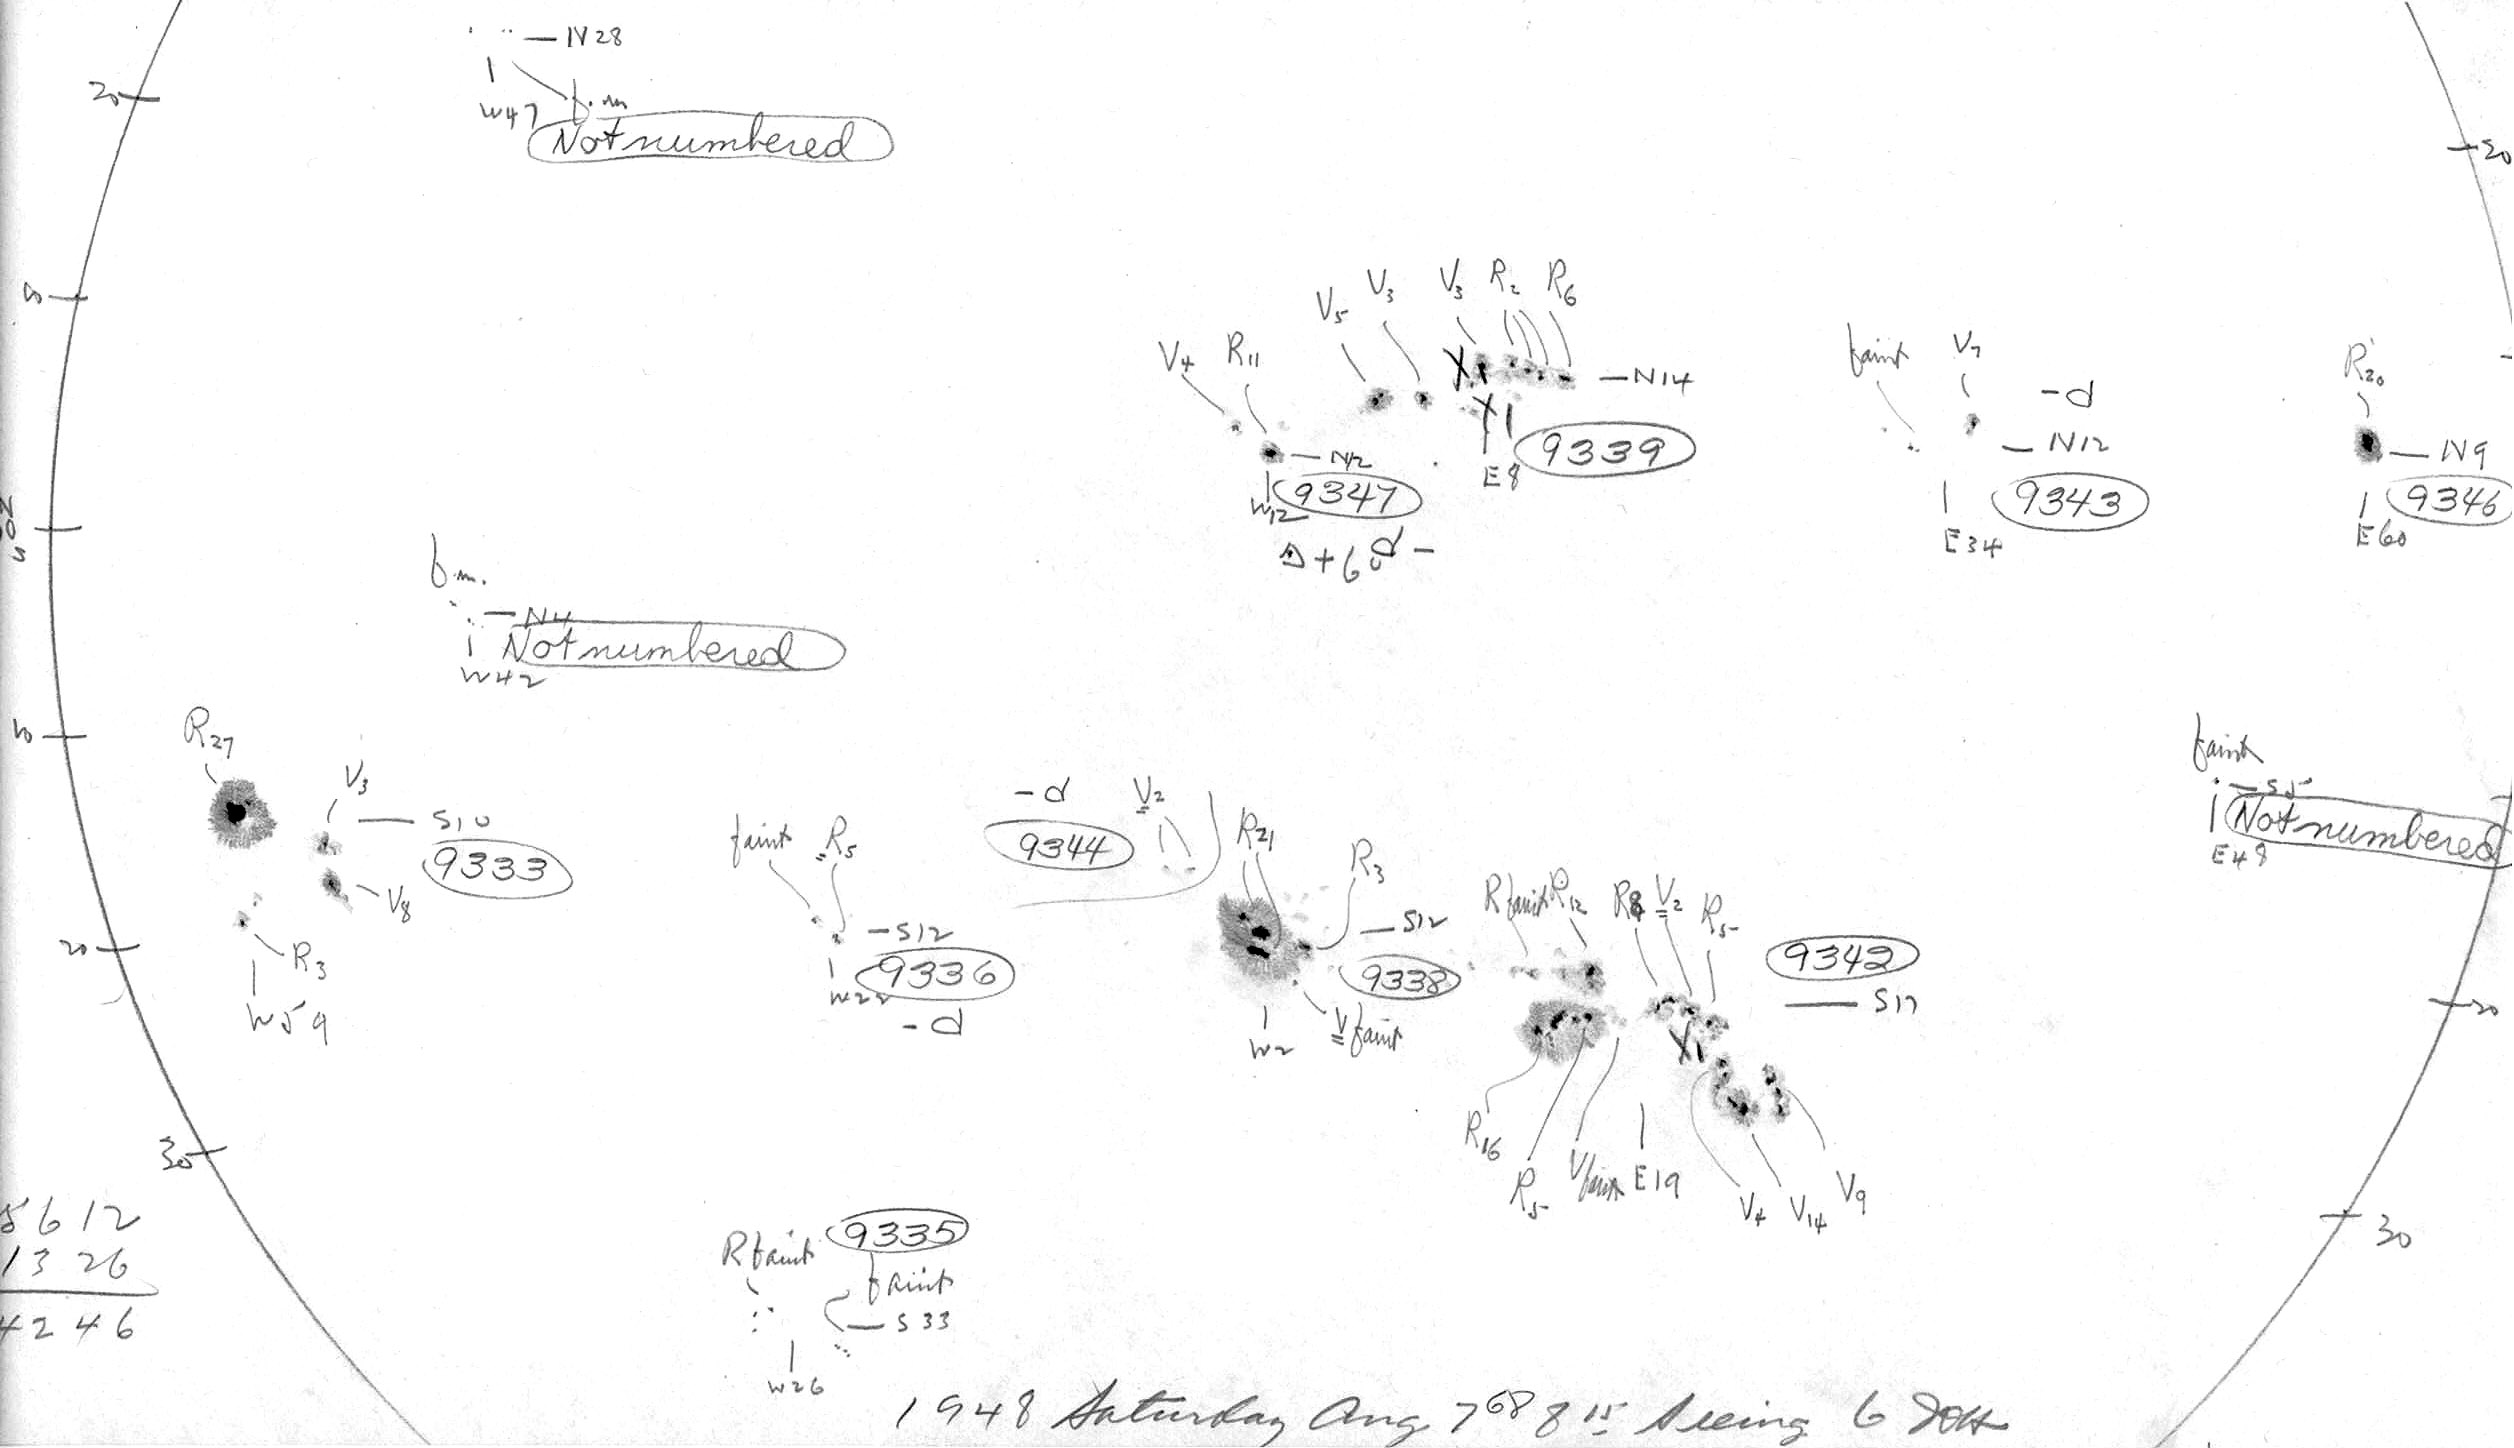 N28
20
W47
f.m
Not numbered
20
V3
V3 R2 R6
V5
V4 R11
N14
9339
E8
N12
9347
W12
d -
faint V7
- d
N12
9343
E34
R20
N9
9346
E60
N
0
S
f.m.
N4
Not numbered
W42
10
R27
V3
S10
9333
V8
R3
W59
20
faint R5
S12
9336
W22
- d
- d
9344
V2
R21
R3
S12
9338
V faint
W2
R faint R12 R8 V2 R5
9342
S17
R16
R5
V faint
E19
V4 V14 V9
faint
S5
Not numbered
E48
20
30
30
5612
1326
4246
9335
R faint
faint
S33
W26
1948 Saturday Aug 7 68 8 15 Seeing 6